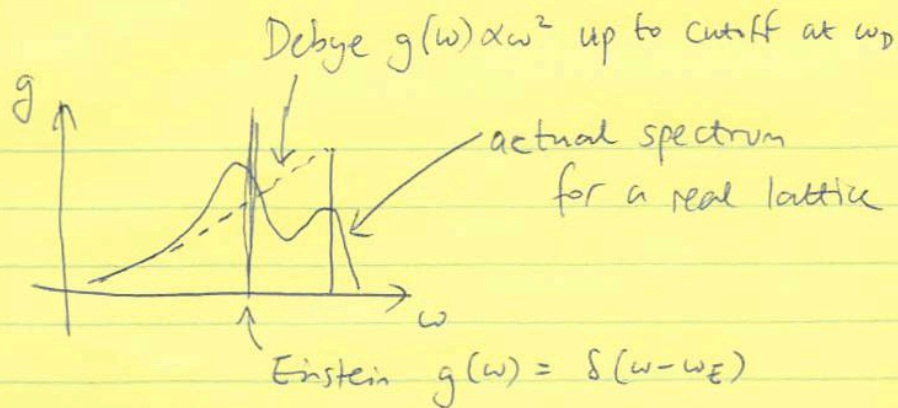 Debye g(ω) ∝ ω² up to cutoff at ω_D
g
actual spectrum
for a real lattice
ω
Einstein g(ω) = δ(ω-ω_E)